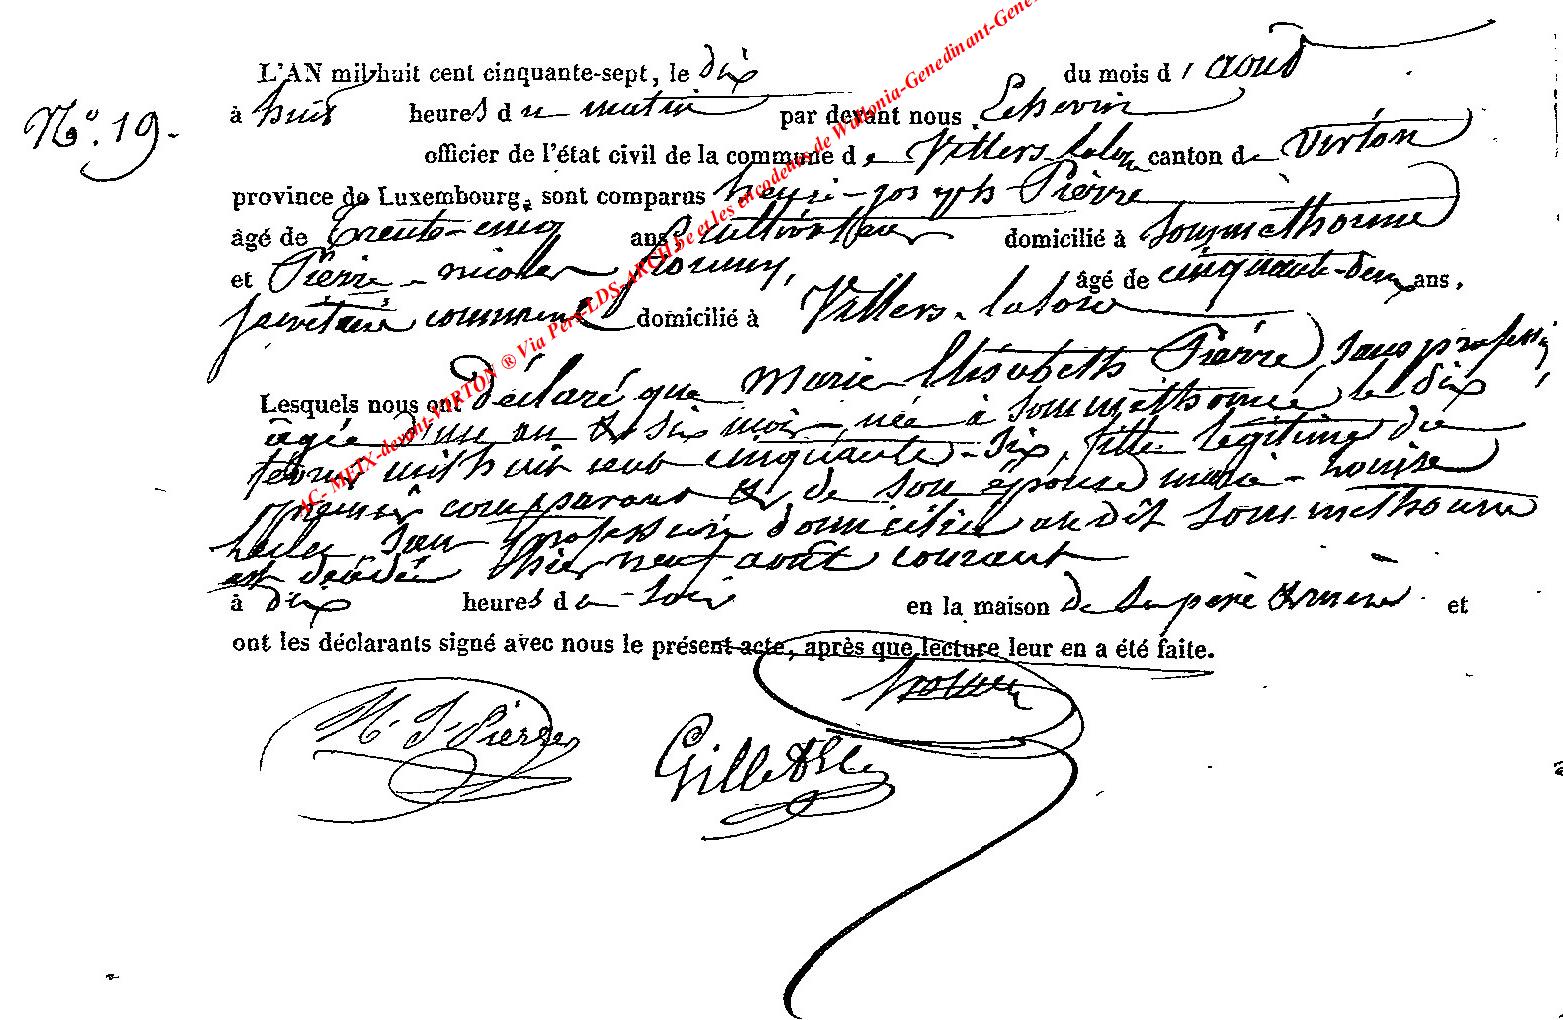 N.º 19.
L'AN mil huit cent cinquante-sept, le dix du mois d'août
à huit heures du matin par devant nous Echevin
officier de l'état civil de la commune de Villers laloue canton de Virton
province de Luxembourg, sont comparus henri-joseph Pierre
âgé de trente-cinq ans Cultivateur domicilié à Sommethonne
et Pierre-nicolas âgé de cinquante-deux ans,
secrétaire communal domicilié à Villers-laloue
Lesquels nous ont déclaré que Marie Elisabeth Pierre, sans profession,
âgée d'une an & six mois, née à Sommethonne le dix
février mil huit cent cinquante-six, fille légitime du
premier comparant & de son épouse marie-Louise
sans profession domiciliée au dit Sommethonne
est décédée hier neuf août courant
à dix heures du soir en la maison de ses père & mère et
ont les déclarants signé avec nous le présent acte, après que lecture leur en a été faite.
H. J. Pierre
Gillet
AC- MEIX-devant-VIRTON ® Via Pers-LDS-ARCH.be et les encodeurs de Wallonia-Genedinant-Gene